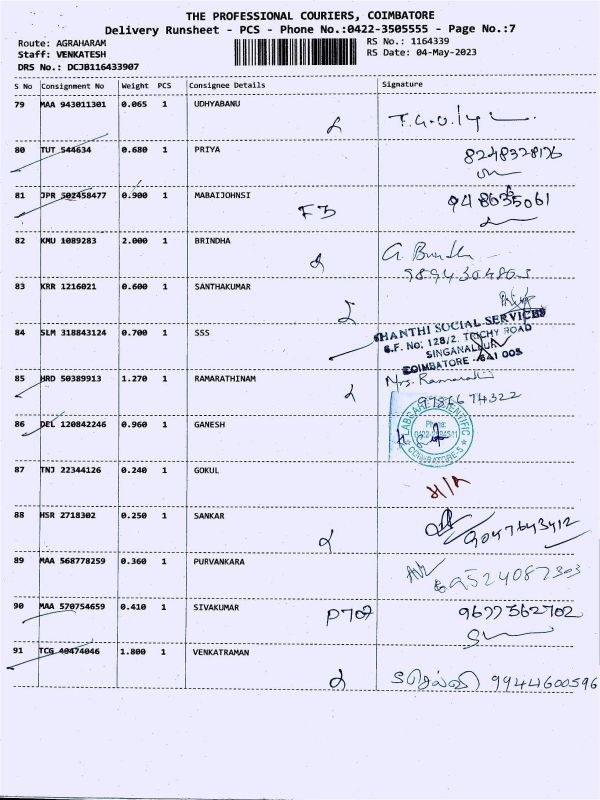 THE PROFESSIONAL COURIERS, COIMBATORE
Delivery Runsheet - PCS - Phone No.:0422-3505555 - Page No.:7
Route: AGRAHARAM
Staff: VENKATESH
DRS No.: DCJB116433907
RS No.: 1164339
RS Date: 04-May-2023
S No Consignment No Weight PCS Consignee Details Signature
79 MAA 943011301 0.065 1 UDHYABANU
80 TUT 544634 0.680 1 PRIYA 8248328176
81 JPR 502458477 0.900 1 MABAIJOHNSI
82 KMU 1089283 2.000 1 BRINDHA G. Brindha
9894304803
83 KRR 1216021 0.600 1 SANTHAKUMAR
84 SLM 318843124 0.700 1 SSS
SHANTHI SOCIAL SERVICES
S.F. No: 128/2, TRICHY ROAD
SINGANALLUR
COIMBATORE - 641 005
85 HRD 50389913 1.270 1 RAMARATHINAM Mrs. Ramarathi
9786674322
86 DEL 120842246 0.960 1 GANESH
LABCARE SCIENTIFIC
Phone:
COIMBATORE-5
87 TNJ 22344126 0.240 1 GOKUL
88 HSR 2718302 0.250 1 SANKAR 9047643412
89 MAA 568778259 0.360 1 PURVANKARA 9524087303
90 MAA 570754659 0.410 1 SIVAKUMAR P702 9677362702
91 TCG 40474046 1.800 1 VENKATRAMAN 9944600596